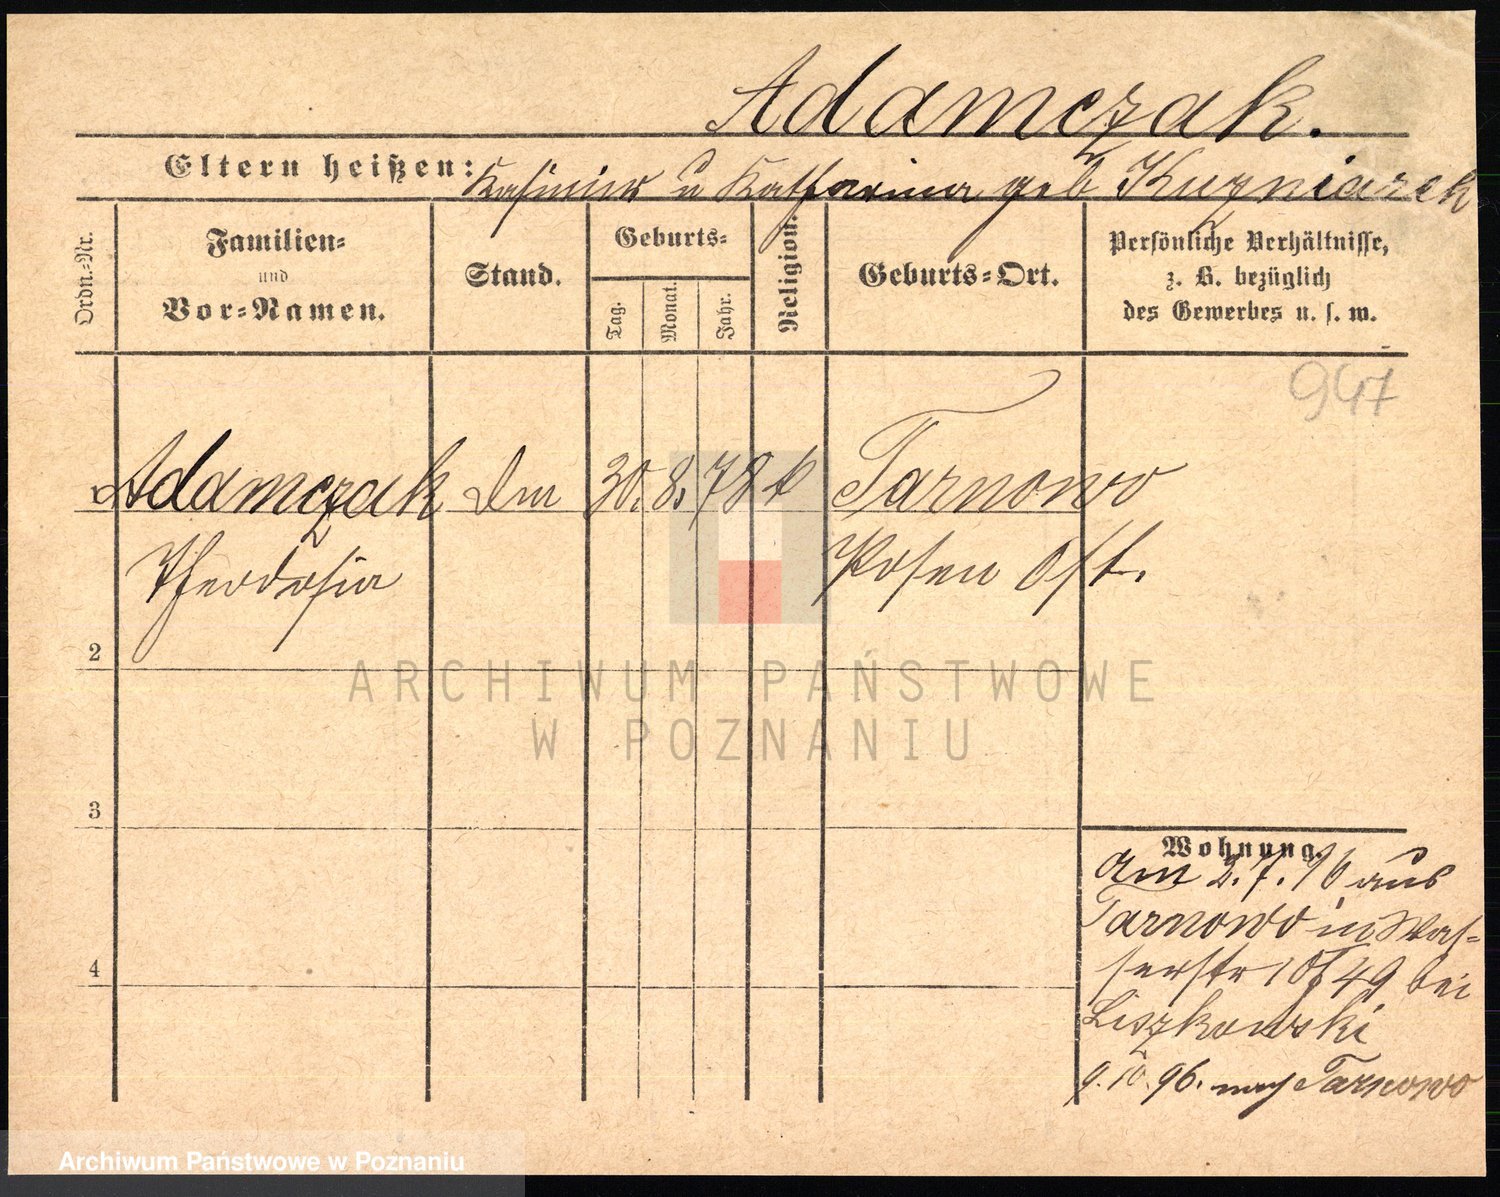 Adamczak.
Eltern heißen: Kasimir u Katharina geb Kuzniarek
Ordn.-Nr.
Familien-
und
Vor-Namen.
Stand.
Geburts-
Tag.
Monat.
Jahr.
Religion.
Geburts-Ort.
Persönliche Verhältnisse,
z. B. bezüglich
des Gewerbes u. s. w.
947
Adamczak 30. 8. 78 k Tarnowo
Theodosia Posen Ost.
2
ARCHIWUM PAŃSTWOWE
W POZNANIU
3
Wohnung.
Am 2.7.96 aus
Tarnowo in Was-
serstr 49 bei
Liszkowski
4
9.10.96. nach Tarnowo
Archiwum Państwowe w Poznaniu